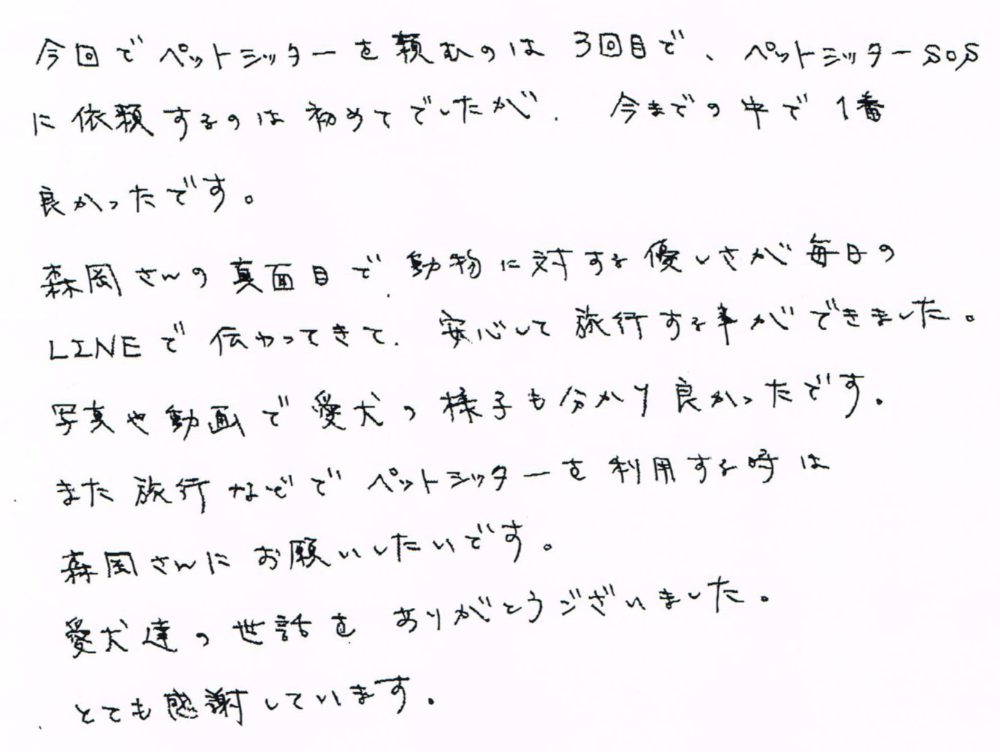 今回でペットシッターを頼むのは3回目で、ペットシッターSOS
に依頼するのは初めてでしたが、今までの中で1番
良かったです。
森岡さんの真面目で、動物に対する優しさが毎日の
LINEで伝わってきて、安心して旅行する事ができました。
写真や動画で愛犬の様子も分かり良かったです。
また旅行などでペットシッターを利用する時は
森岡さんにお願いしたいです。
愛犬達の世話をありがとうございました。
とても感謝しています。